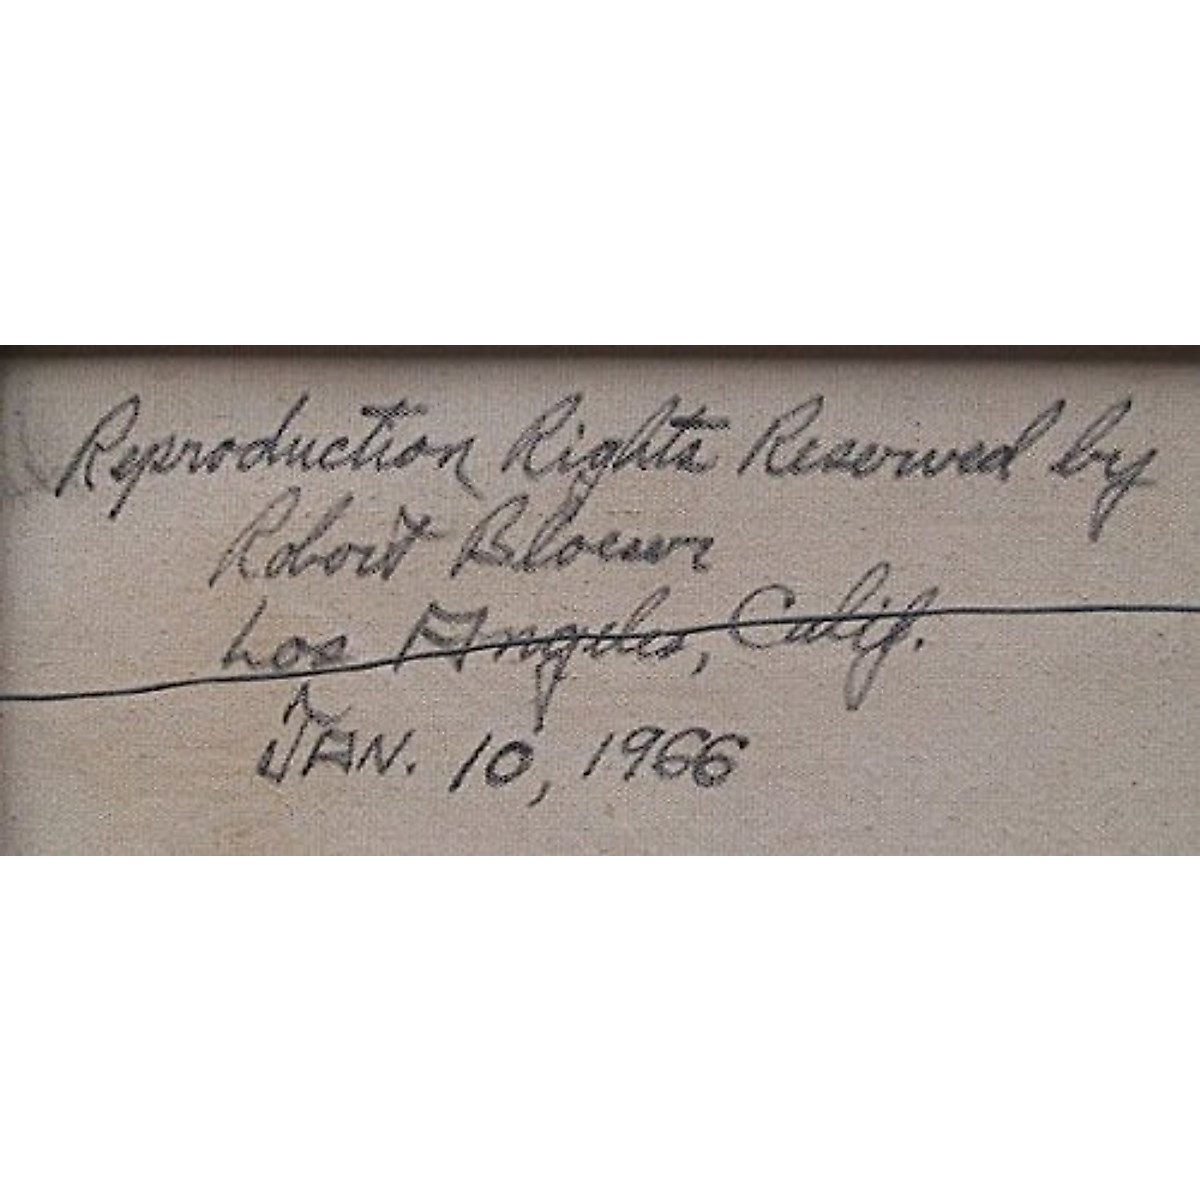 Reproduction Rights Reserved by
Robert Bloewr
Los Angeles, Calif.
JAN. 10, 1966